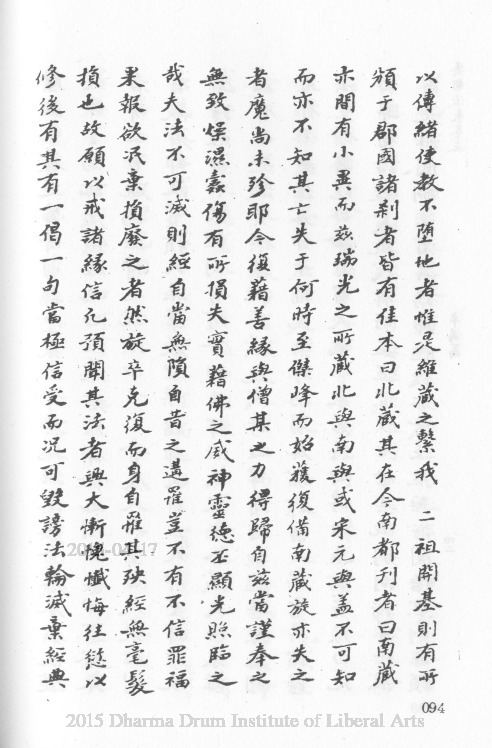 以傳緒使教不墮地者惟是維藏之繫我　二祖開基則有所
頒于郡國諸剎者皆有佳本曰北藏其在今南都刊者曰南藏
亦間有小異而茲瑞光之所藏北與南與或宋元與蓋不可知
而亦不知其亡失于何時至傑峰而始獲復備南藏旋亦失之
者魔尚未殄耶今復藉善緣與僧某之力得歸自茲當謹奉之
無致燥濕蠹傷有所損失實藉佛之威神靈德丕顯光照臨之
哉夫法不可滅則經自當無隕自昔之遘罹豈不有不信罪福
果報欲泯棄損廢之者然旋卒克復而身自罹其殃經無毫髮
損也故願以戒諸緣信凡預聞其法者興大慚愧懺悔往愆以
修後有其有一偈一句當極信受而況可毀謗法輪滅棄經典
094
2015 Dharma Drum Institute of Liberal Arts